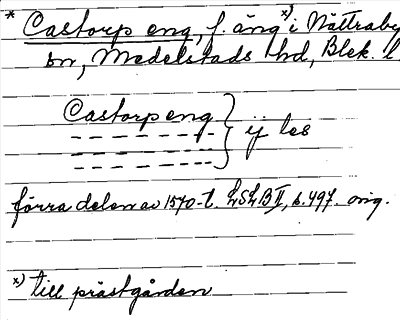 * Castorp eng, f. äng x) i Nättraby
sn, Medelstads hd, Blek. l
Castorp eng } ij les
förra delen av 1570-t. LSLB II, s. 497. orig.
x) till prästgården